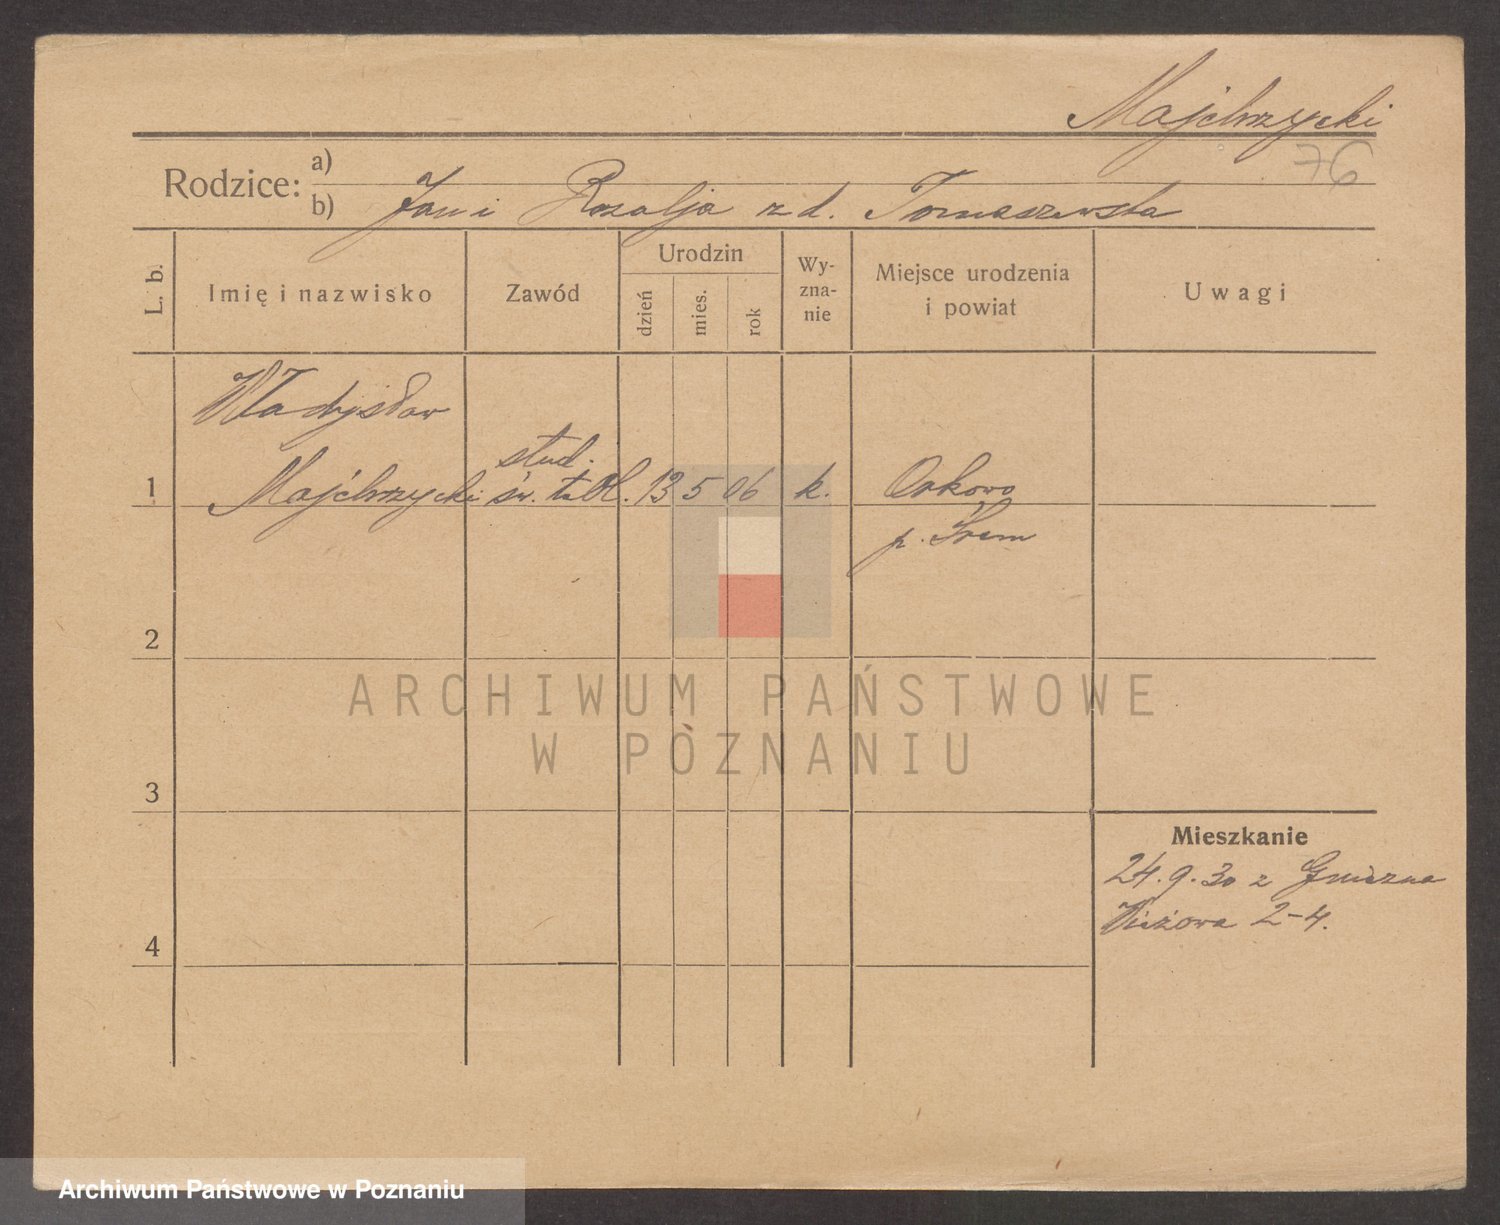 Majchrzycki
76
Rodzice: a)
b) Jan i Rozalja z d. Tomaszewska
L. b.
Imię i nazwisko
Zawód
Urodzin
dzień
mies.
rok
Wy-
zna-
nie
Miejsce urodzenia
i powiat
Uwagi
Władysław
stud.
1 Majchrzycki św. 13 5 06 k. Orkowo
p. Śrem
2
ARCHIWUM PAŃSTWOWE
W POZNANIU
3
Mieszkanie
24.9.30 z Gniezna
Wieżowa 2-4.
4
Archiwum Państwowe w Poznaniu